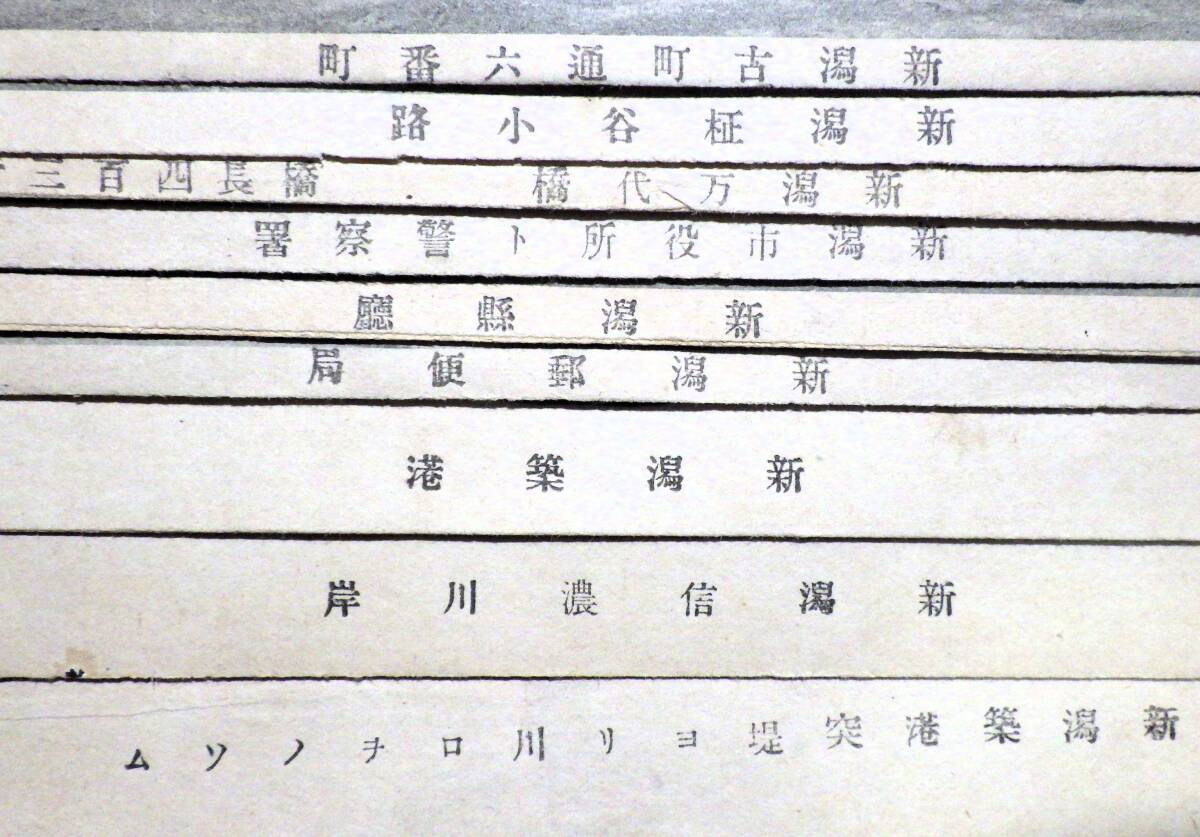 新潟古町通六番町
新潟柾谷小路
新潟万代橋 . 橋長四百三
新潟市役所ト警察署
新潟縣廳
新潟郵便局
新潟築港
新潟信濃川岸
新潟築港突堤ヨリ川口ヲノソム